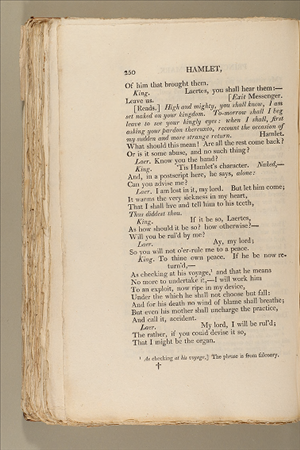 250 HAMLET,
Of him that brought them.
King. Laertes, you shall hear them:—
Leave us. [Exit Messenger.
[Reads.] High and mighty, you shall know, I am
set naked on your kingdom. To-morrow shall I beg
leave to see your kingly eyes: when I shall, first
asking your pardon thereunto, recount the occasion of
my sudden and more strange return. Hamlet.
What should this mean? Are all the rest come back?
Or is it some abuse, and no such thing?
Laer. Know you the hand?
King. 'Tis Hamlet's character. Naked,—
And, in a postscript here, he says, alone:
Can you advise me?
Laer. I am lost in it, my lord. But let him come;
It warms the very sickness in my heart,
That I shall live and tell him to his teeth,
Thus diddest thou.
King. If it be so, Laertes,
As how should it be so? how otherwise?—
Will you be rul'd by me?
Laer. Ay, my lord;
So you will not o'er-rule me to a peace.
King. To thine own peace. If he be now re-
turn'd,—
As checking at his voyage,¹ and that he means
No more to undertake it,—I will work him
To an exploit, now ripe in my device,
Under the which he shall not choose but fall:
And for his death no wind of blame shall breathe;
But even his mother shall uncharge the practice,
And call it, accident.
Laer. My lord, I will be rul'd;
The rather, if you could devise it so,
That I might be the organ.
¹ As checking at his voyage,] The phrase is from falconry.
†